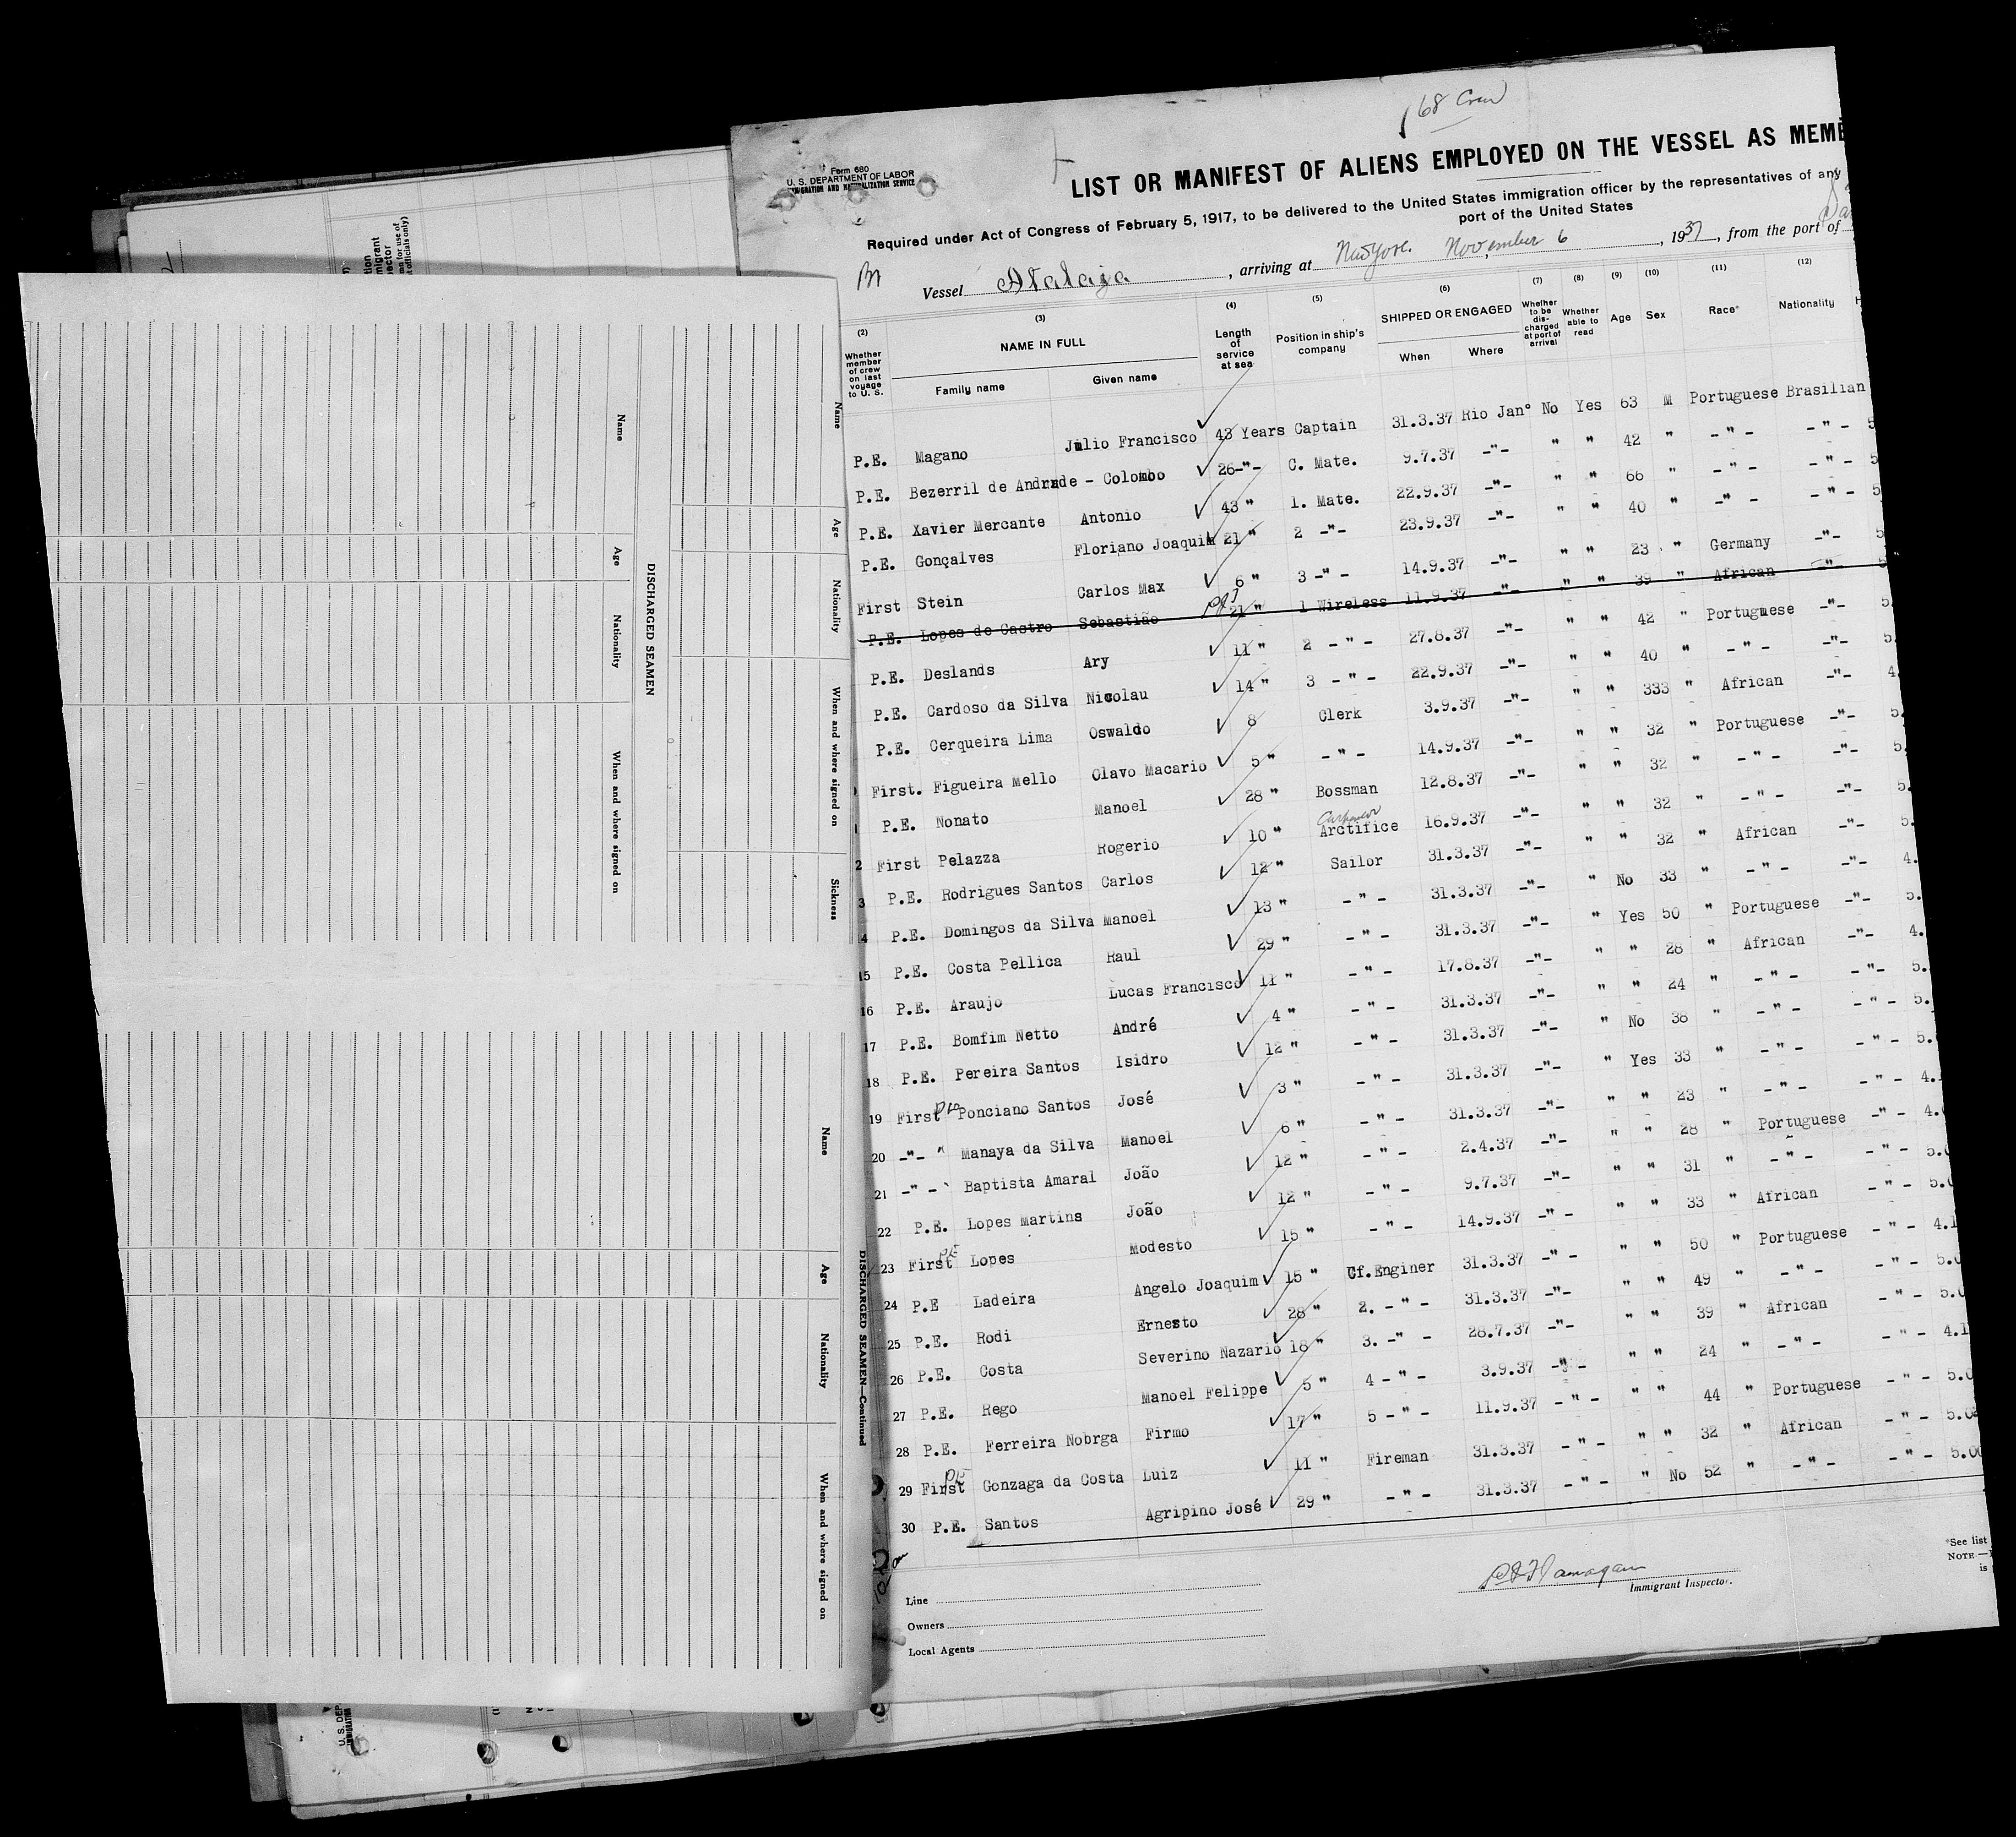 68 Crew
Form 680
U. S. DEPARTMENT OF LABOR
IMMIGRATION AND NATURALIZATION SERVICE
LIST OR MANIFEST OF ALIENS EMPLOYED ON THE VESSEL AS MEMB
Required under Act of Congress of February 5, 1917, to be delivered to the United States immigration officer by the representatives of any
port of the United States
Vessel Atalaya, arriving at New York. November 6, 1937, from the port of
(2) (3) (4) (5) (6) (7) (8) (9) (10) (11) (12)
Whether member of crew on last voyage to U. S. NAME IN FULL Length of service at sea Position in ship's company SHIPPED OR ENGAGED Whether to be discharged at port of arrival Whether able to read Age Sex Race* Nationality
Family name Given name When Where
P.E. Magano Julio Francisco 43 Years Captain 31.3.37 Rio Jan° No Yes 63 M Portuguese Brasilian
P.E. Bezerril de Andrade - Colombo 26-"- C. Mate. 9.7.37 -"- " " 42 " - " - - " - 5
P.E. Xavier Mercante Antonio 43 " 1. Mate. 22.9.37 -"- " " 66 " - " - - " - 5
P.E. Gonçalves Floriano Joaquim 21 " 2 -"- 23.9.37 -"- " " 40 " -"- - " - 5
First Stein Carlos Max 6 " 3 -"- 14.9.37 -"- " " 23 " Germany -"- 5
P.E. Lopes de Castro Sebastião 21 " 1 Wireless 11.9.37 -"- " " 39 " African -"- 5
P.E. Deslands Ary 11 " 2 - " - 27.8.37 -"- " " 42 " Portuguese -"- 5.
P.E. Cardoso da Silva Nicolau 14 " 3 - " - 22.9.37 -"- " " 40 " - " - -"- 5.
P.E. Cerqueira Lima Oswaldo 8 Clerk 3.9.37 -"- " " 333 " African -"- 4.
First. Figueira Mello Olavo Macario 5 " - " - 14.9.37 -"- " " 32 " Portuguese -"- 5.
P.E. Nonato Manoel 28 " Bossman 12.8.37 -"- " " 32 " - " - -"- 5.
Carpenter
2 First Pelazza Rogerio 10 " Arctifice 16.9.37 -"- " " 32 " - " - -"- 5.
3 P.E. Rodrigues Santos Carlos 12 " Sailor 31.3.37 -"- " " 32 " African -"- 5.
4 P.E. Domingos da Silva Manoel 13 " - " - 31.3.37 -"- " No 33 " - " - -"- 4.
15 P.E. Costa Pellica Raul 29 " - " - 31.3.37 -"- " Yes 50 " Portuguese -"- 5.
16 P.E. Araujo Lucas Francisco 11 " - " - 17.8.37 -"- " " 28 " African -"- 4.
17 P.E. Bomfim Netto André 4 " - " - 31.3.37 -"- " " 24 " - " - - "- 5.
18 P.E. Pereira Santos Isidro 12 " - " - 31.3.37 -"- " No 38 " - " - - " - 5.
19 First Ponciano Santos José 3 " - " - 31.3.37 -"- " Yes 33 " - " - - " - 5.
20 -"- " Manaya da Silva Manoel 6 " - " - 31.3.37 -"- " " 23 " - " - - " - 4.
21 -"- Baptista Amaral João 12 " - " - 2.4.37 -"- " " 28 " Portuguese -"- 4.
22 P.E. Lopes Martins João 12 " - " - 9.7.37 -"- " " 31 - " - - " - 5.
23 First PE Lopes Modesto 15 " - " - 14.9.37 -"- " " 33 " African - " - 5.
24 P.E Ladeira Angelo Joaquim 15 " Cf.Enginer 31.3.37 -" - " " 50 " Portuguese - " - 4.1
25 P.E. Rodi Ernesto 28 " 2. - " - 31.3.37 -"- " " 49 " - " - - " - 5.0
26 P.E. Costa Severino Nazario 18 " 3. -" - 28.7.37 -"- " " 39 " African - " - 5.0
27 P.E. Rego Manoel Felippe 5 " 4 - " - 3.9.37 -"- " " 24 " - " - - " - 4.1
28 P.E. Ferreira Nobrga Firmo 17 " 5 - " - 11.9.37 - " - " " 44 " Portuguese - " - 5.0
29 First PE Gonzaga da Costa Luiz 11 " Fireman 31.3.37 - " - " " 32 " African - " - 5.0
30 P.E. Santos Agripino José 29 " - " - 31.3.37 - " - " No 52 " - " - - " - 5.00
Immigrant Inspector.
Line
Owners
Local Agents
*See list
NOTE.—
is
DISCHARGED SEAMEN
Name
Age
Nationality
When and where signed on
Name
Age
Nationality
When and where signed on
Sickness
DISCHARGED SEAMEN—Continued
Name
Age
Nationality
When and where signed on